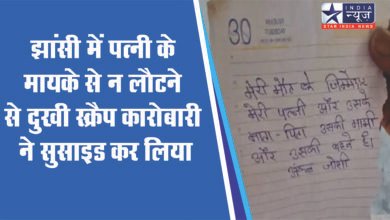 झांसी में पत्नी के
मायके से न लौटने
से दुखी स्क्रैप कारोबारी
ने सुसाइड कर लिया
INDIA
न्यूज़
STAR INDIA NEWS
30
TUESDAY
मेरी मौत के जिम्मेदार
मेरी पत्नी और उसके
माता-पिता उसकी भाभी
और उसकी बहने है।
जोशी